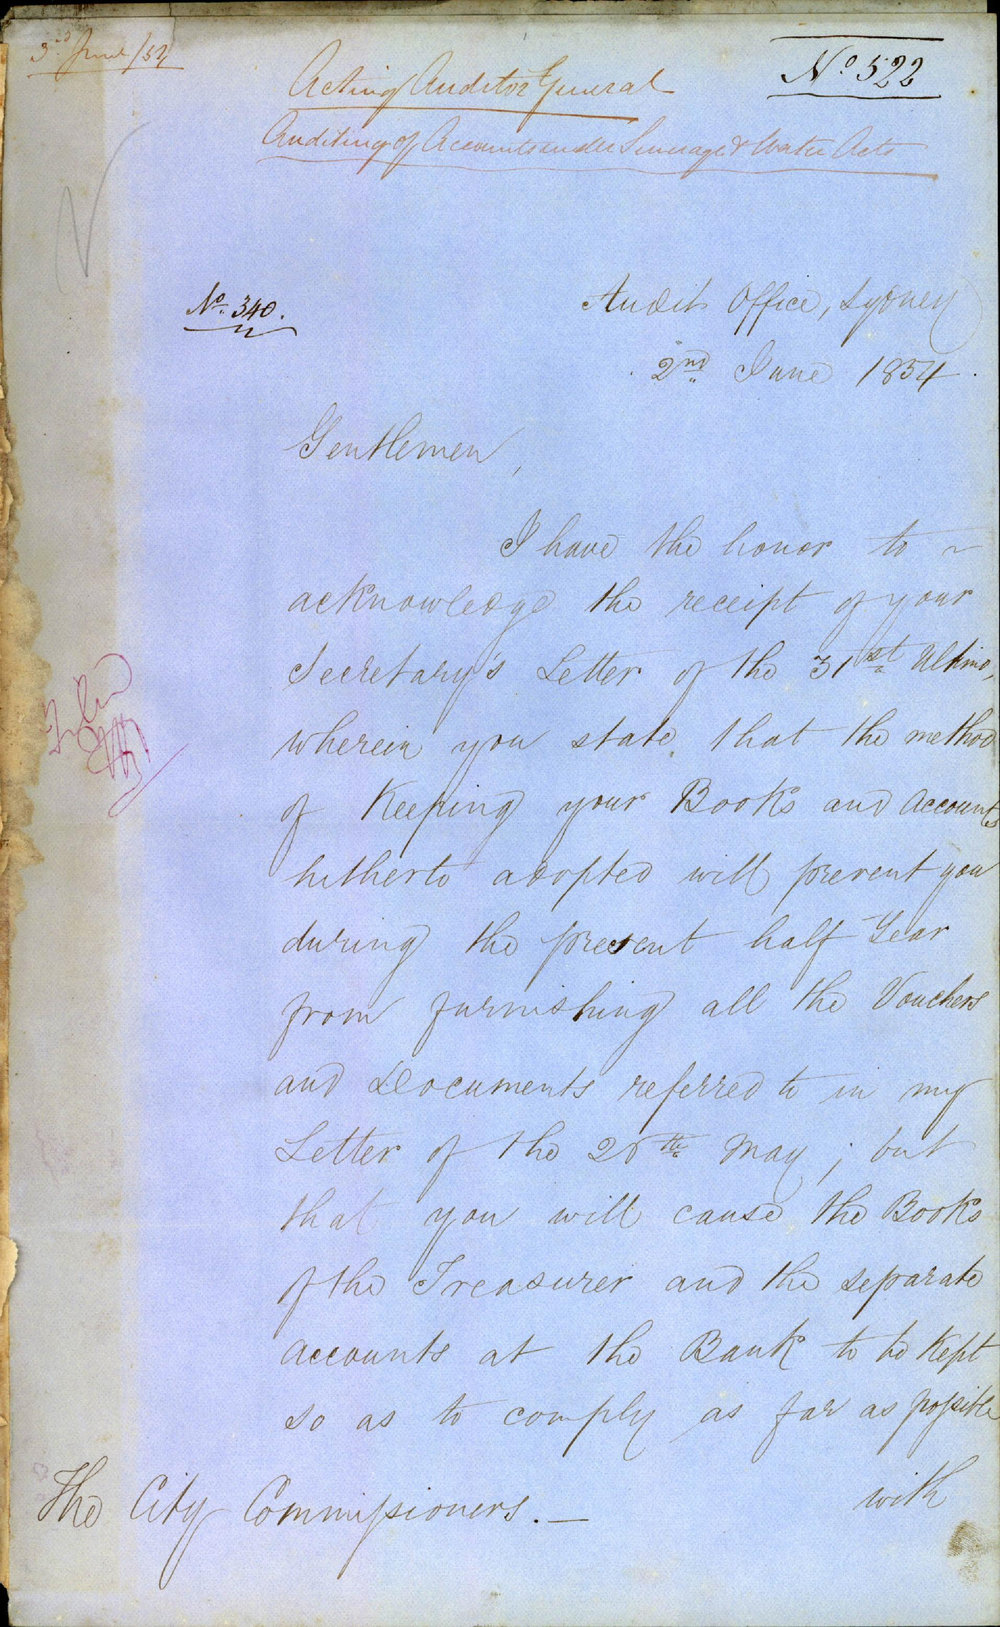 3rd June/54
Acting Auditor General
No 522
Auditing of Accounts under Sewerage & Water Acts
No. 340.
Audit Office, Sydney
2nd June 1854.
Gentlemen,
I have the honor to
acknowledge the receipt of your
Secretary's Letter of the 31st Ultimo,
wherein you state that the method
of Keeping your Books and Accounts
hitherto adopted will prevent you
during the present half Year
from furnishing all the Vouchers
and Documents referred to in my
Letter of the 26th May; but
that you will cause the Books
of the Treasurer and the separate
accounts at the Bank to be Kept
so as to comply as far as possible
with
The City Commissioners.—